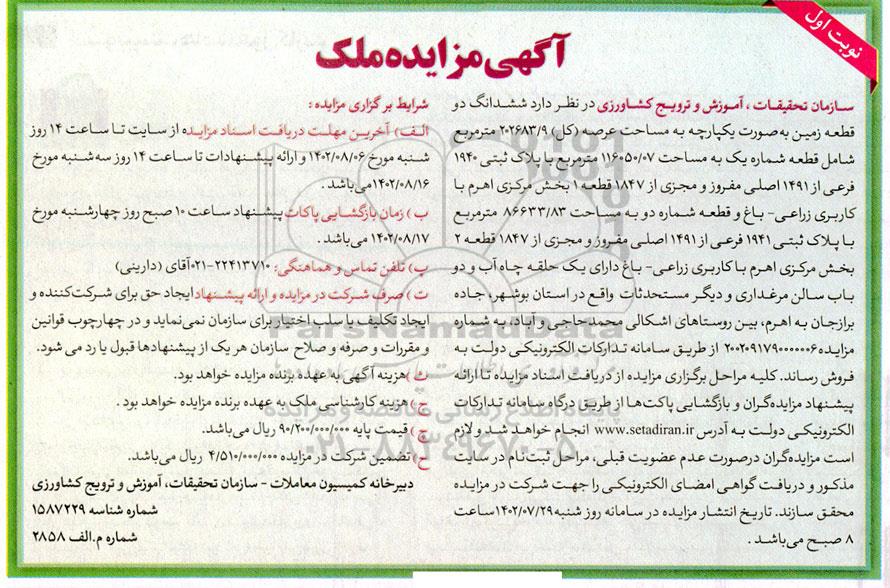 نوبت اول
آگهی مزایده ملک
سازمان تحقیقات، آموزش و ترویج کشاورزی در نظر دارد ششدانگ دو
قطعه زمین به‌صورت یکپارچه به مساحت عرصه (کل) ۲۰۲۶۸۳/۹ مترمربع
شامل قطعه شماره یک به مساحت ۱۱۶۰۵۰/۰۷ مترمربع با پلاک ثبتی ۱۹۴۰
فرعی از ۱۴۹۱ اصلی مفروز و مجزی از ۱۸۴۷ قطعه ۱ بخش مرکزی اهرم با
کاربری زراعی- باغ و قطعه شماره دو به مساحت ۸۶۶۳۳/۸۳ مترمربع
با پلاک ثبتی ۱۹۴۱ فرعی از ۱۴۹۱ اصلی مفروز و مجزی از ۱۸۴۷ قطعه ۲
بخش مرکزی اهرم با کاربری زراعی- باغ دارای یک حلقه چاه آب و دو
باب سالن مرغداری و دیگر مستحدثات واقع در استان بوشهر، جاده
برازجان به اهرم، بین روستاهای اشکالی محمدحاجی و اباد، به شماره
مزایده ۲۰۰۲۰۹۱۷۹۰۰۰۰۰۰۶ از طریق سامانه تدارکات الکترونیکی دولت به
فروش رساند. کلیه مراحل برگزاری مزایده از دریافت اسناد مزایده تا ارائه
پیشنهاد مزایده‌گران و بازگشایی پاکت‌ها از طریق درگاه سامانه تدارکات
الکترونیکی دولت به آدرس www.setadiran.ir انجام خواهد شد و لازم
است مزایده‌گران درصورت عدم عضویت قبلی، مراحل ثبت‌نام در سایت
مذکور و دریافت گواهی امضای الکترونیکی را جهت شرکت در مزایده
محقق سازند. تاریخ انتشار مزایده در سامانه روز شنبه ۱۴۰۲/۰۷/۲۹ ساعت
۸ صبح می‌باشد.
شرایط برگزاری مزایده:
الف) آخرین مهلت دریافت اسناد مزایده از سایت تا ساعت ۱۴ روز
شنبه مورخ ۱۴۰۲/۰۸/۰۶ و ارائه پیشنهادات تا ساعت ۱۴ روز سه‌شنبه مورخ
۱۴۰۲/۰۸/۱۶ می‌باشد.
ب) زمان بازگشایی پاکات پیشنهاد ساعت ۱۰ صبح روز چهارشنبه مورخ
۱۴۰۲/۰۸/۱۷ می‌باشد.
پ) تلفن تماس و هماهنگی: ۲۲۴۱۳۷۱۰-۰۲۱ آقای (دارینی)
ت) صرف شرکت در مزایده و ارائه پیشنهاد ایجاد حق برای شرکت‌کننده و
ایجاد تکلیف یا سلب اختیار برای سازمان نمی‌نماید و در چهارچوب قوانین
و مقررات و صرفه و صلاح سازمان هر یک از پیشنهادها قبول یا رد می شود.
ث) هزینه آگهی به عهده برنده مزایده خواهد بود.
ج) هزینه کارشناسی ملک به عهده برنده مزایده خواهد بود.
چ) قیمت پایه ۹۰/۲۰۰/۰۰۰/۰۰۰ ریال می‌باشد.
ح) تضمین شرکت در مزایده ۴/۵۱۰/۰۰۰/۰۰۰ ریال می‌باشد.
دبیرخانه کمیسیون معاملات - سازمان تحقیقات، آموزش و ترویج کشاورزی
شماره شناسه ۱۵۸۷۲۲۹
شماره م.الف ۲۸۵۸
ParsNamadData
پایگاه اطلاع رسانی مناقصه و مزایده
۰۲۱-۸۸۳۴۹۶۷۰-۵